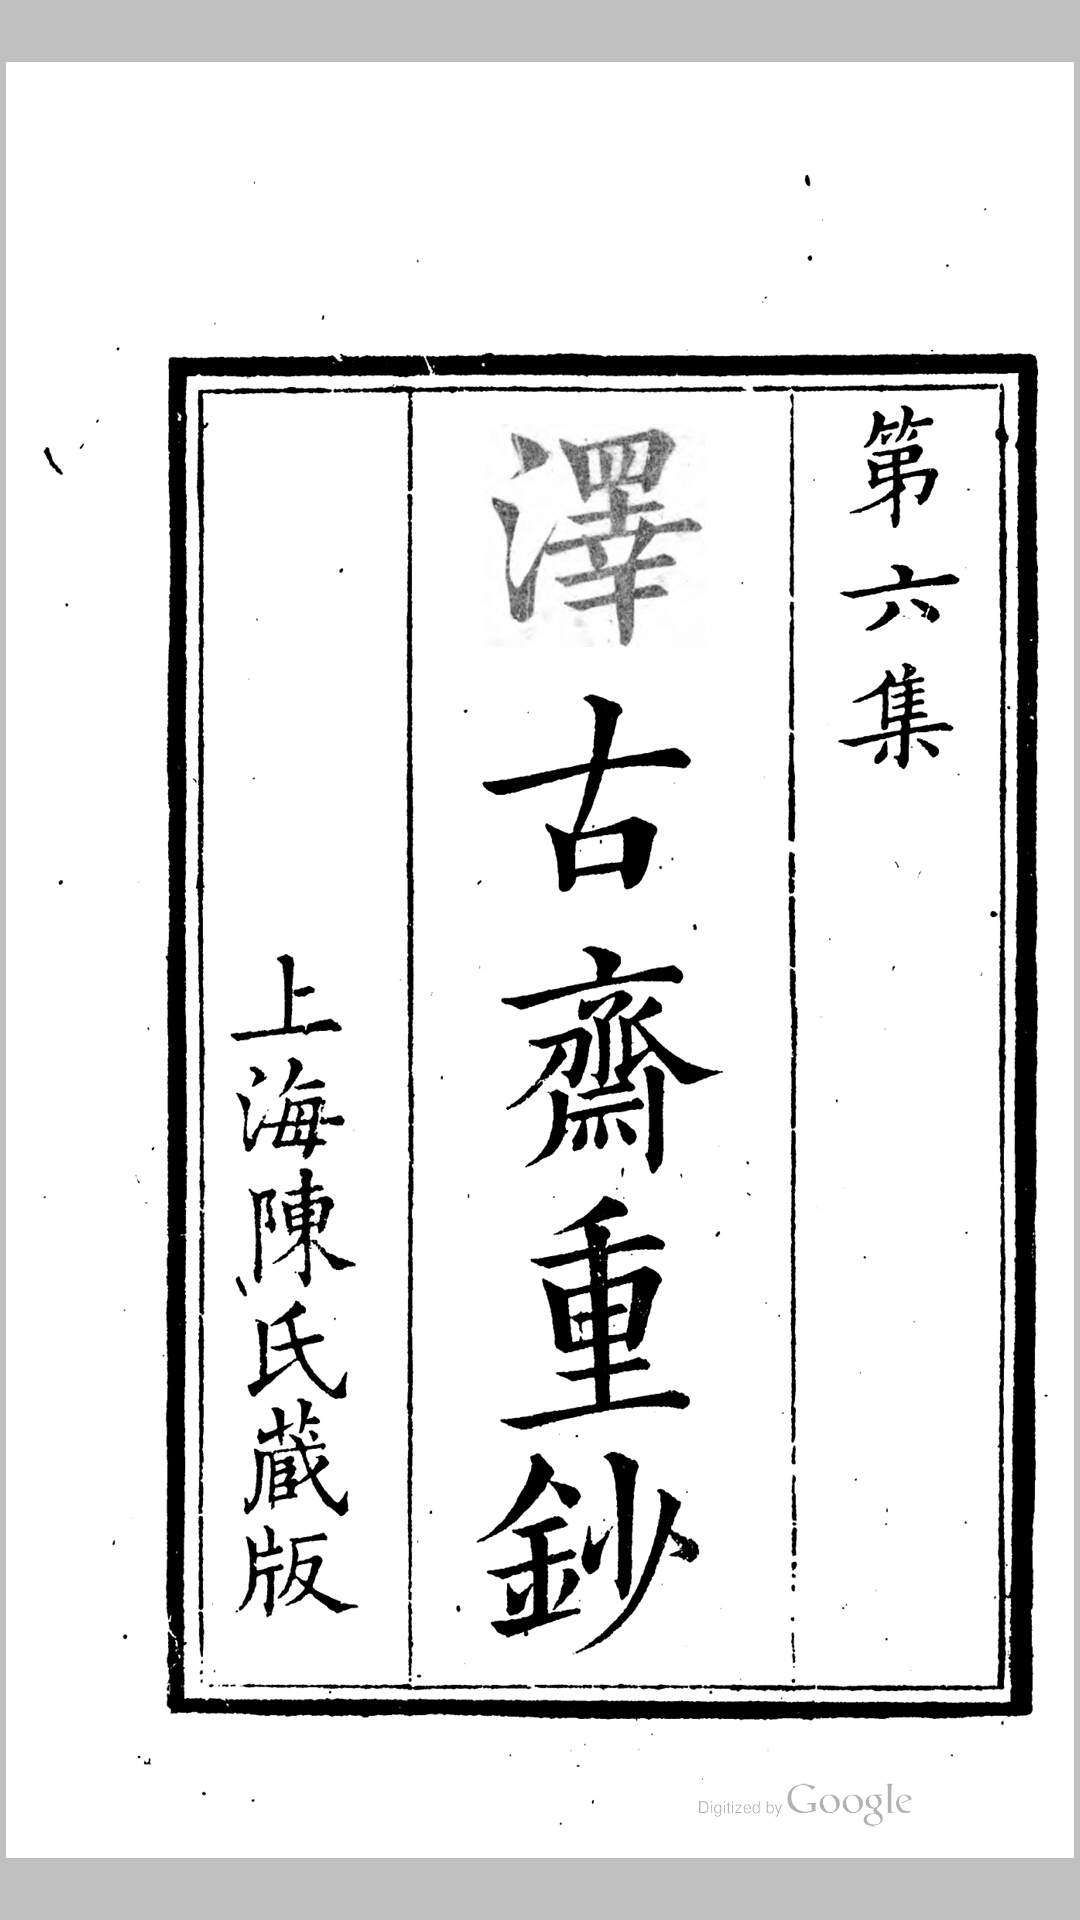 第六集
澤古齋重鈔
上海陳氏藏版
Digitized by Google